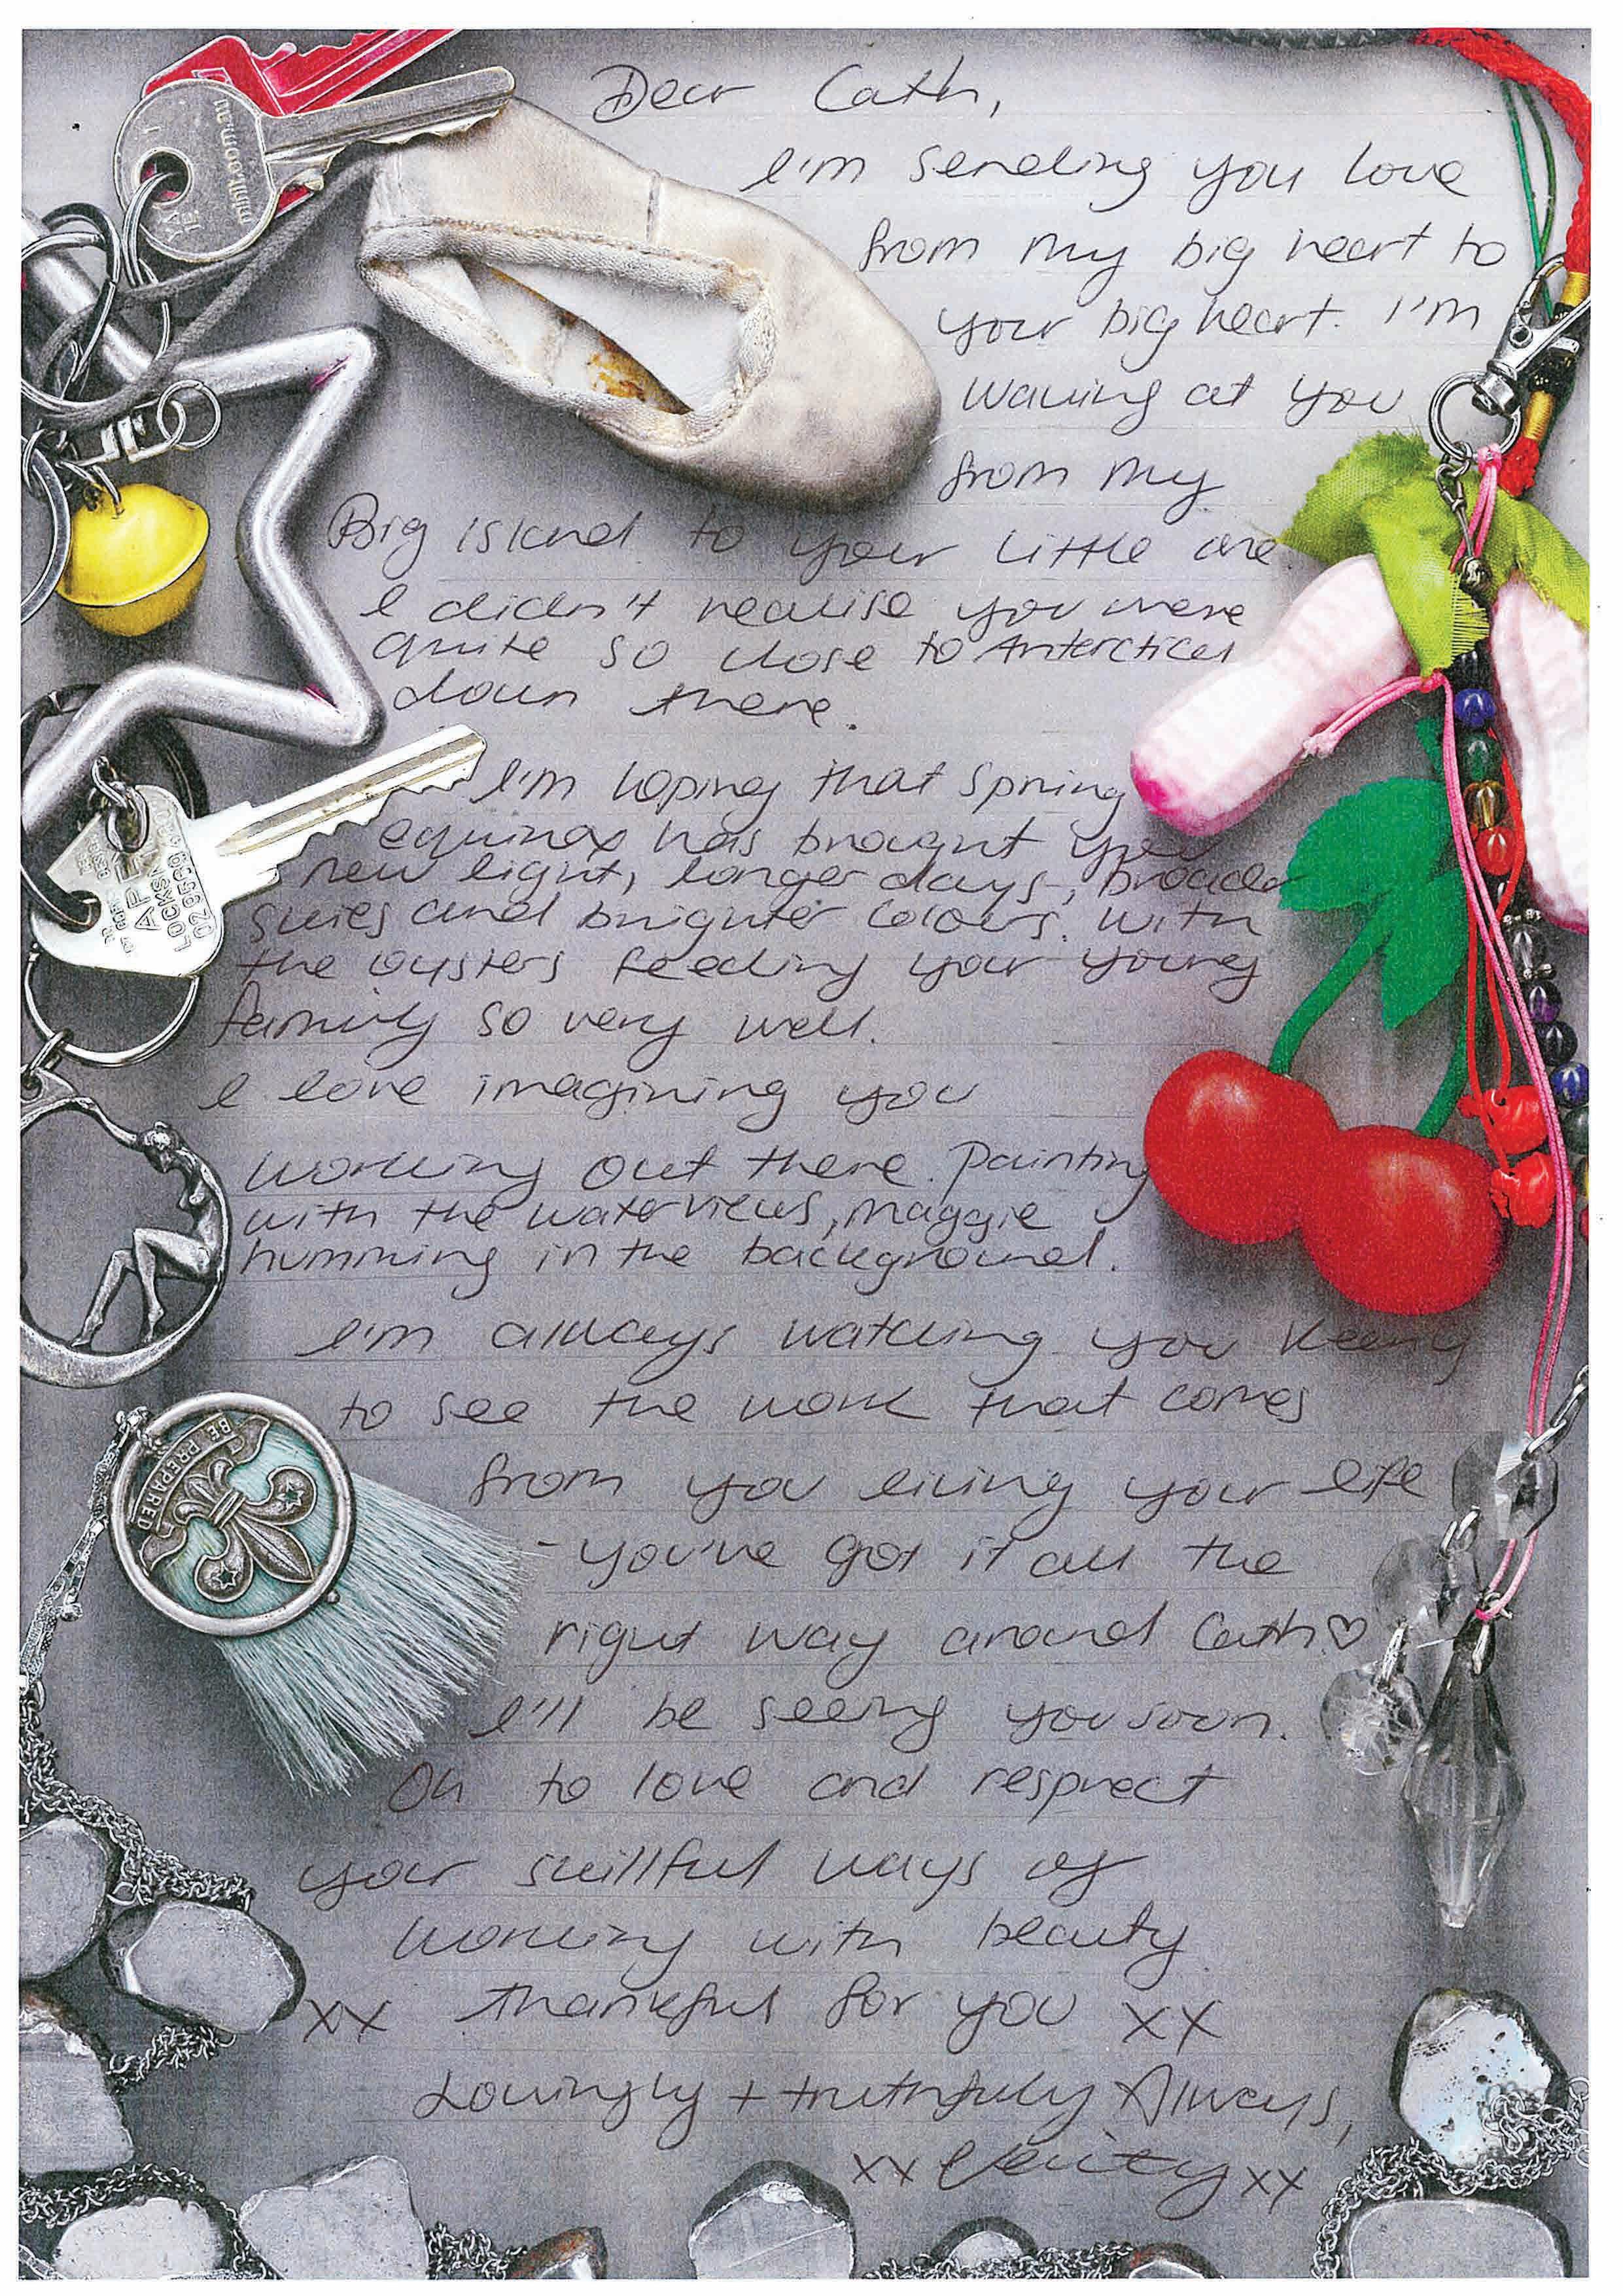 Dear Cath,
I'm sending you love
from my big heart to
your big heart. I'm
waving at you
from my
Big island to your little one
I didn't realise you were
quite so close to Antarctica
down there.
I'm hoping that spring
equinox has brought you
new light, longer days, broader
skies and brighter colours. With
the oysters feeding your young
family so very well.
I love imagining you
working out there. Painting
with the water views, maggie
humming in the background.
I'm always watching you keenly
to see the work that comes
from you living your life
- you've got it all the
right way around Cath ♡
I'll be seeing you soon.
Oh to love and respect
your skillful ways of
working with beauty
xx thankful for you xx
Lovingly + truthfuly Always,
xx Verity xx
minit.com.au
LOCKSM
BE PREPARED